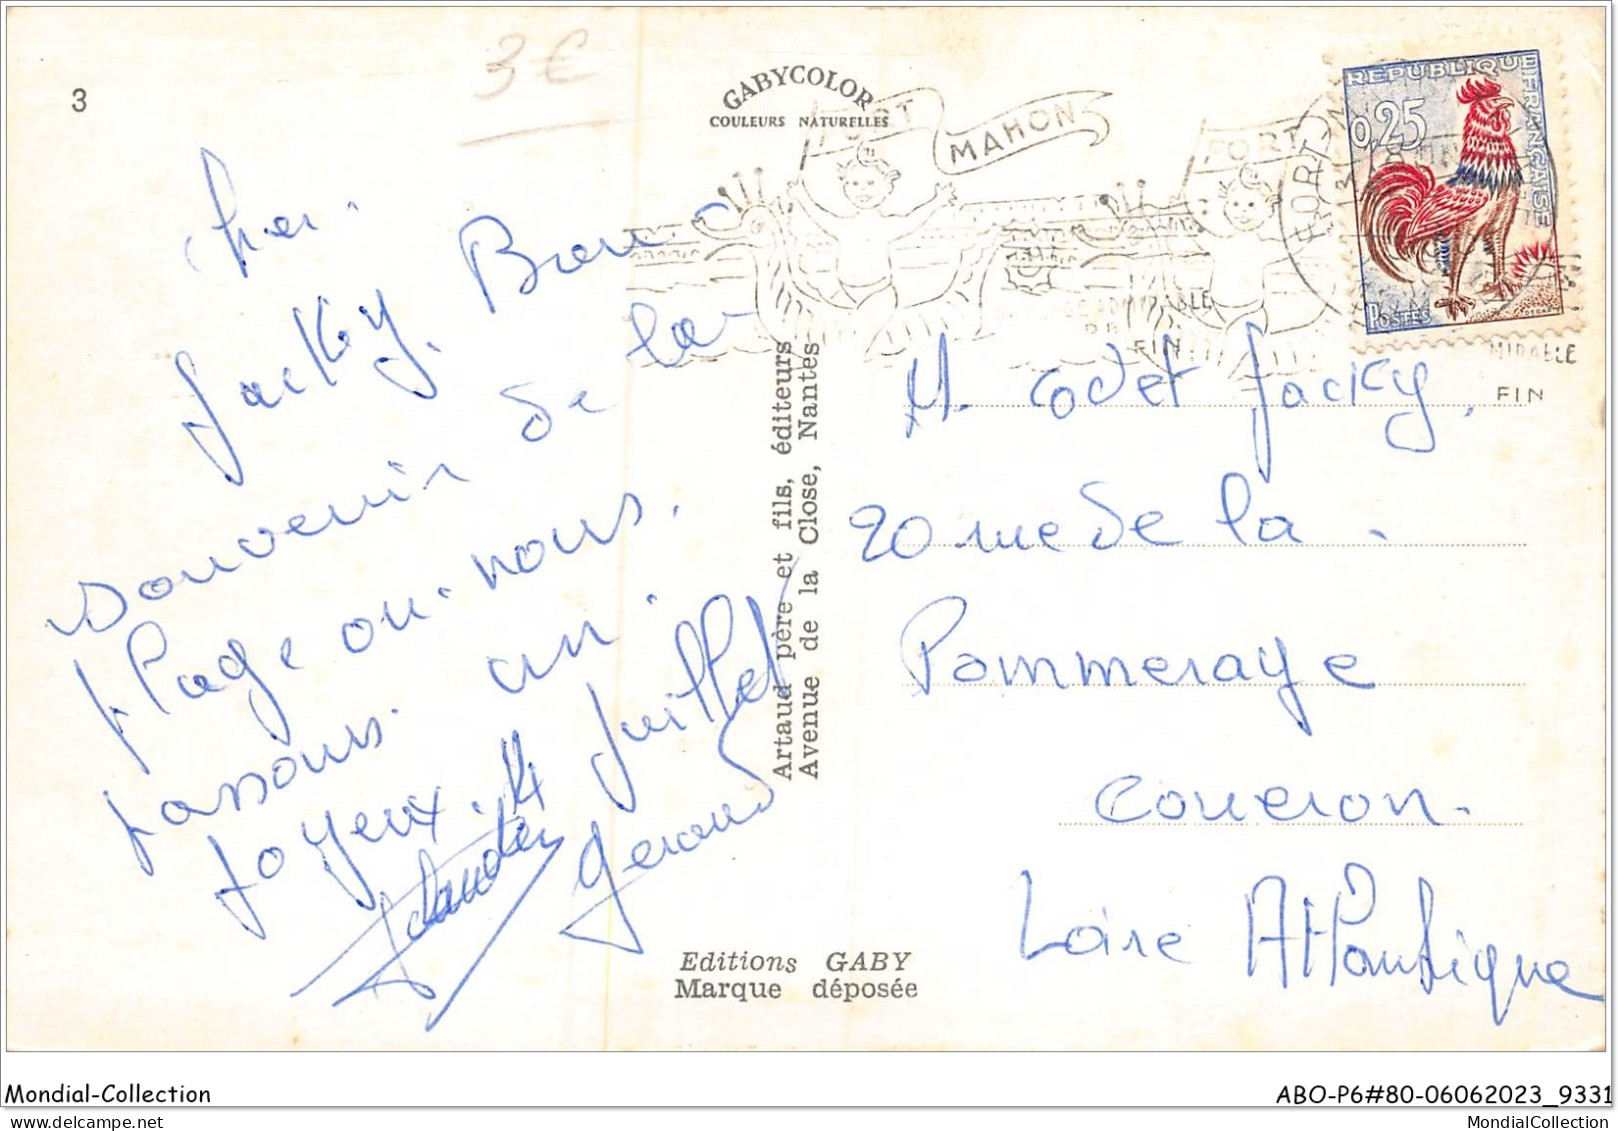 3
3 €
GABYCOLOR
COULEURS NATURELLES
FORT MAHON
FORT
PLAGE ADMIRABLE
DE
FIN
RÉPUBLIQUE FRANÇAISE
0,25
POSTES
DECARIS
MIRABLE
FIN
Cher
Jacky. Bon
souvenir de la
plage ou nous
passons un
Joyeux 14 Juillet
Gérard
Artaud père et fils, éditeurs
Avenue de la Close, Nantes
M. Odet Jacky,
20 rue de la
Pommeraye
Coueron.
Loire Atlantique
Editions GABY
Marque déposée
Mondial-Collection
ABO-P6#80-06062023_9331
MondialCollection